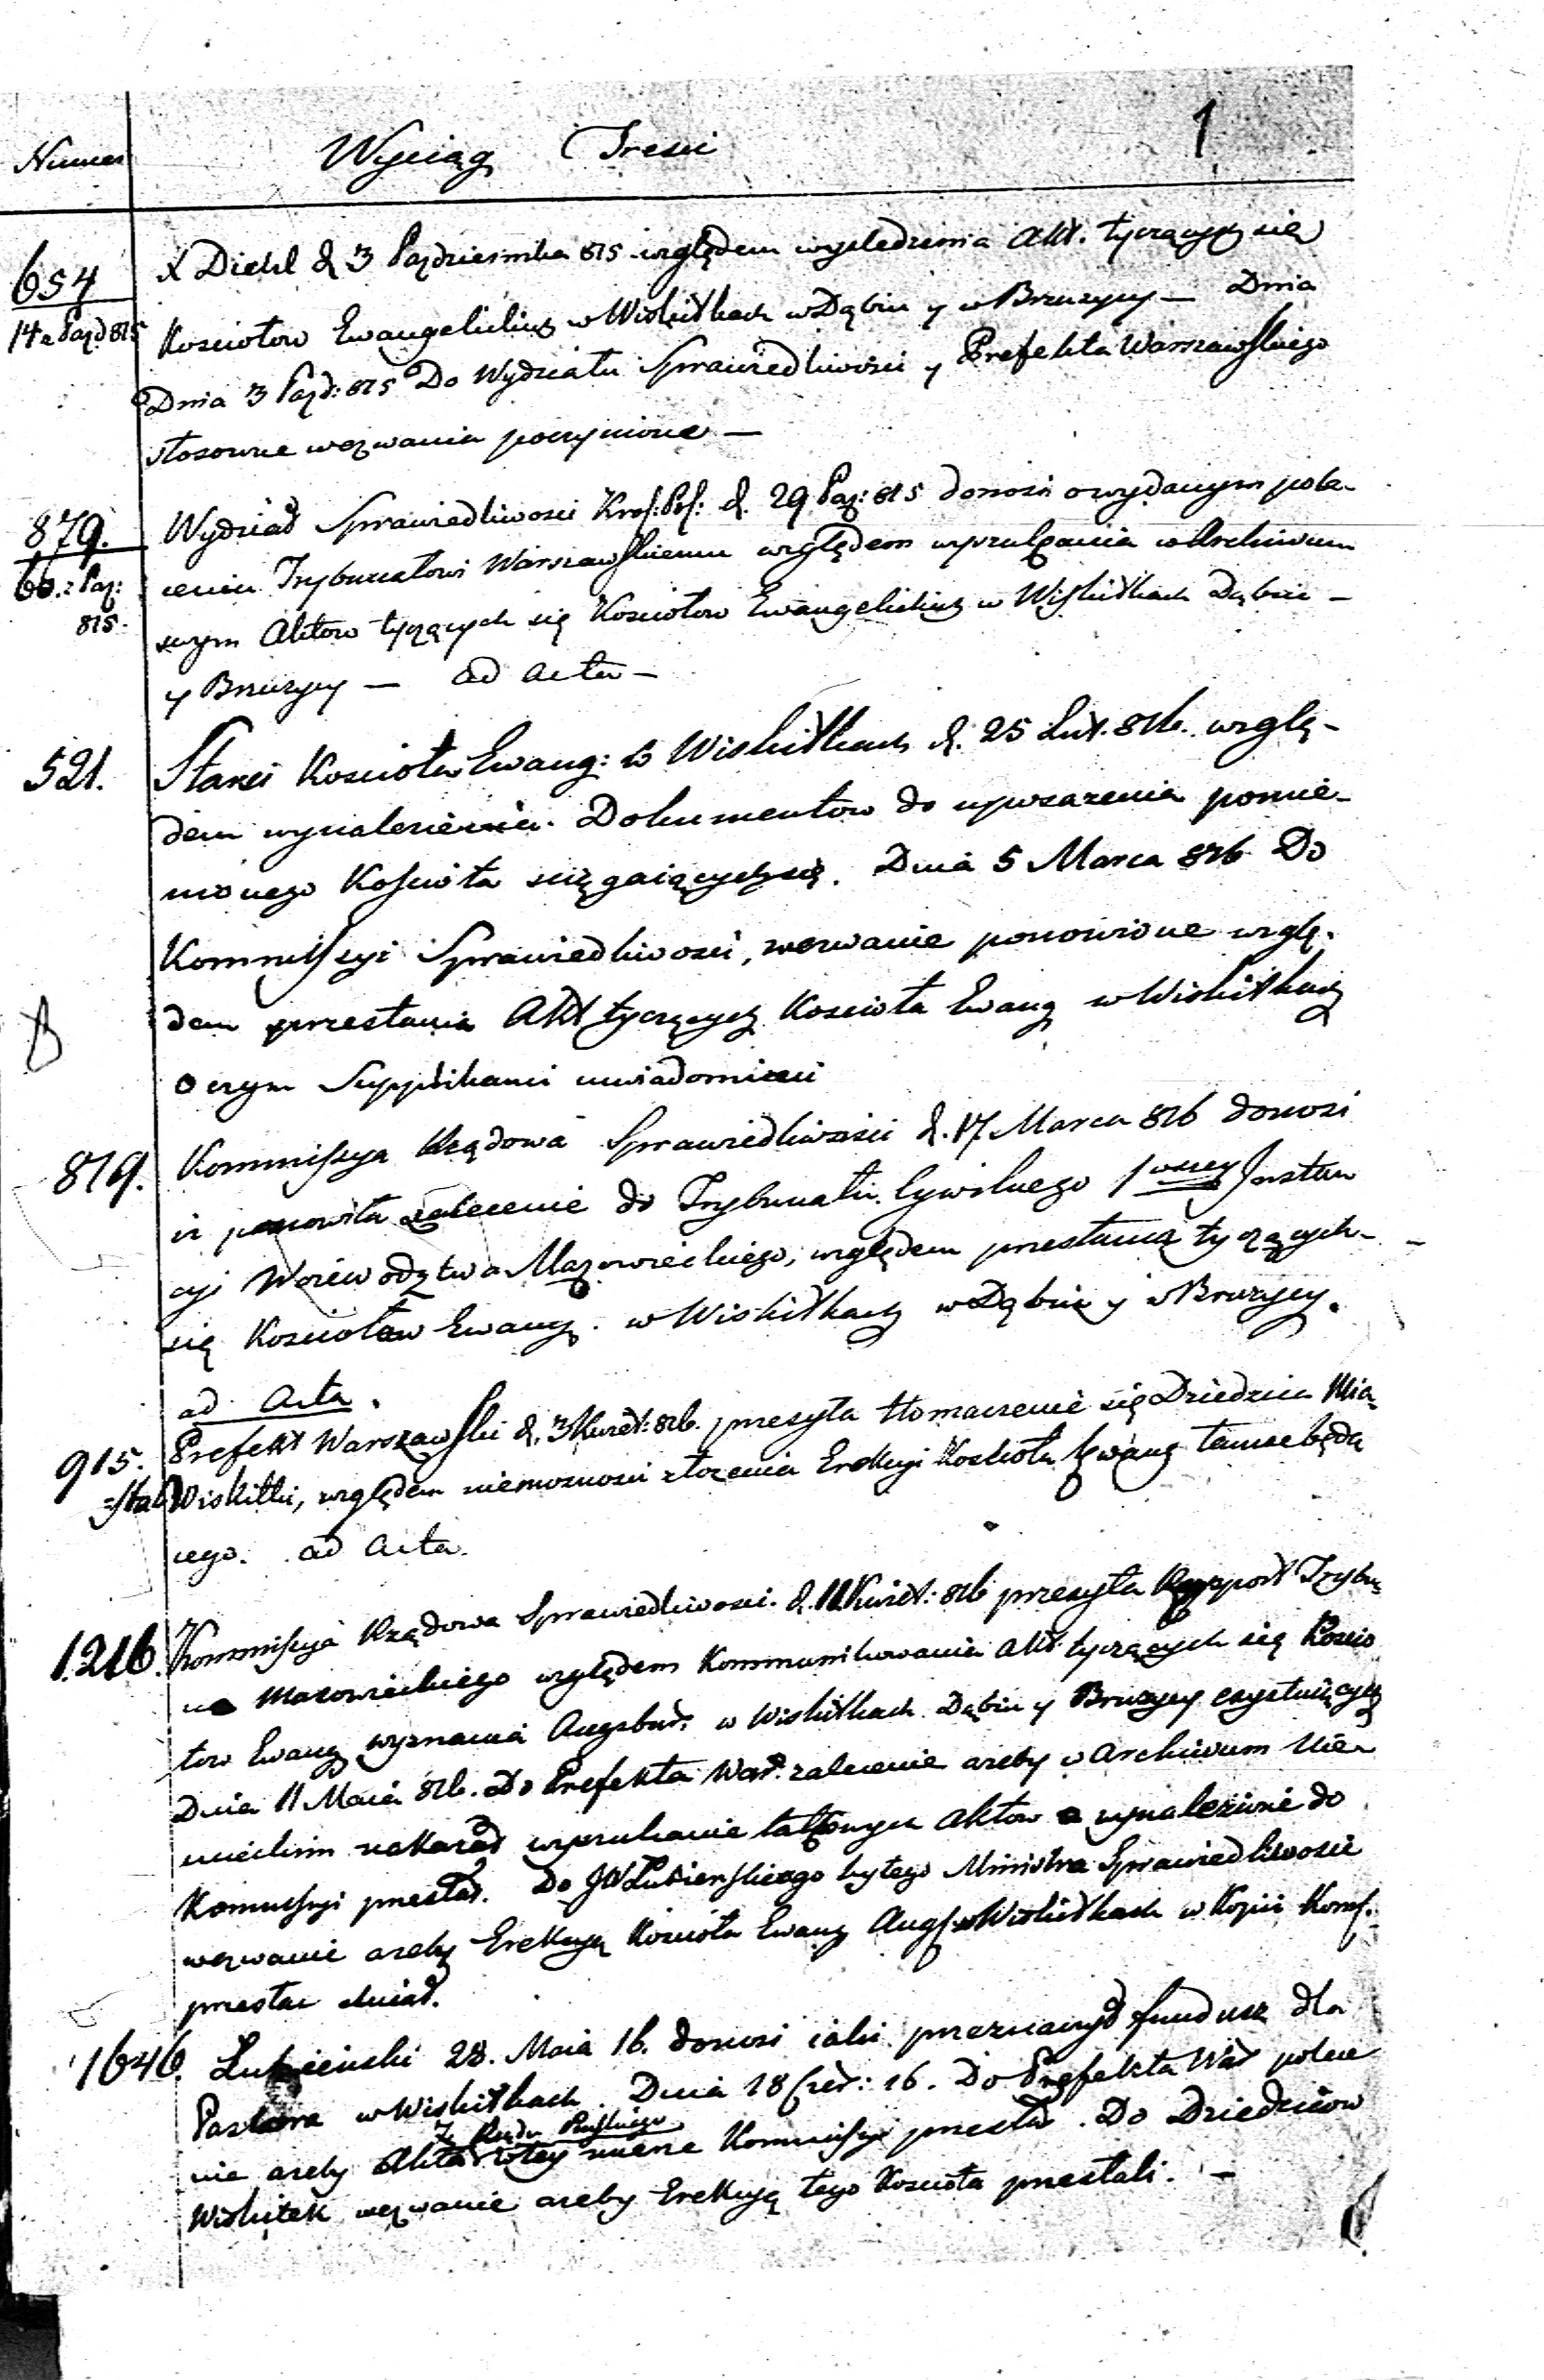 1
Numer Wyciąg Tresci
654
14 z Pazd 815
X Diehl d. 3 Pazdziernika 815 względem wysledzenia Akt. tyczących się
Kosciołow Ewangelickich w Wiskitkach w Dąbiu y w Bruzycy — Dnia
Dnia 3 Pazd: 815 Do Wydziału Sprawiedliwości y Prefekta Warszawskiego
stosowne wezwania poczynione —
879.
66. z Paz:
815.
Wydział Sprawiedliwosci d. 29 Paz: 815 donosi o wydanym pole-
ceniu Trybunałowi Warszawskiemu względem wyszukania w Archiwum
swym Aktow tyczących się Kosciołow Ewangelickich w Wiskitkach Dąbiu —
y Bruzycy — ad acta —
521.
Starsi Kościoła Ewang: w Wiskitkach d. 25 Lut. 816. wzglę-
dem wynalezienia Dokumentow do upsazenia pomie-
nionego Kościoła sciągaiących się. Dnia 5 Marca 816 Do
Kommissyi Sprawiedliwosci, wezwanie ponowione wzglę-
dem przesłania Akt tyczących Koscioła Ewang w Wiskitkach
o czym Supplikanci uwiadomieni
879.
Kommissya Rządowa Sprawiedliwosci d. 17 Marca 816 donosi
iz ponowiła zalecenie do Trybunału Cywilnego 1wszey Instan
cyi Woiewodztwa Mazowieckiego, względem przesłania tyczących
się Kosciołow Ewang. w Wiskitkach w Dąbiu y w Bruzycy.
ad Acta.
915.
Prefekt Warszawski d. 3 Kwiet: 816. przesyła tłomaczenie się Dziedzica Mia
sta Wiskitki, względem niemoznosci złozenia Erekcyi Koscioła Ewang tamze będą
cego. ad Acta.
1216.
Kommissya Rządowa Sprawiedliwosci d. 11 Kwiet: 816 przesyła Rapport Trybu
na Mazowieckiego względem Kommunikowania Akt tyczących się Koscio
łow Ewang wyznania Augsbur. w Wiskitkach Dąbiu y Bruzycy exystuiących
Dnia 11 Maia 816. Do Prefekta War. zalecenie azeby w Archiwum
nakazał wyszukanie takowych Aktow a wynalezione do
Kommissyi przesłał. Do JW Łubienskiego byłego Ministra Sprawiedliwosci
wezwanie azeby Erekcyą Koscioła Ewang Augs w Wiskitkach w Kopii Komss.
przesłac chciał.
1646.
Łubienski 28. Maia 16. donosi iaki przeznaczył fundusz dla
Pastora w Wiskitkach. Dnia 18 Czer: 16. Do Prefekta War polece
Z Rządu Pruskiego
nie azeby Akta w tey mierze Kommissyi przesłał. Do Dziedzicow
Wiskitek wezwanie azeby Erekcyą tego Koscioła przesłali. —